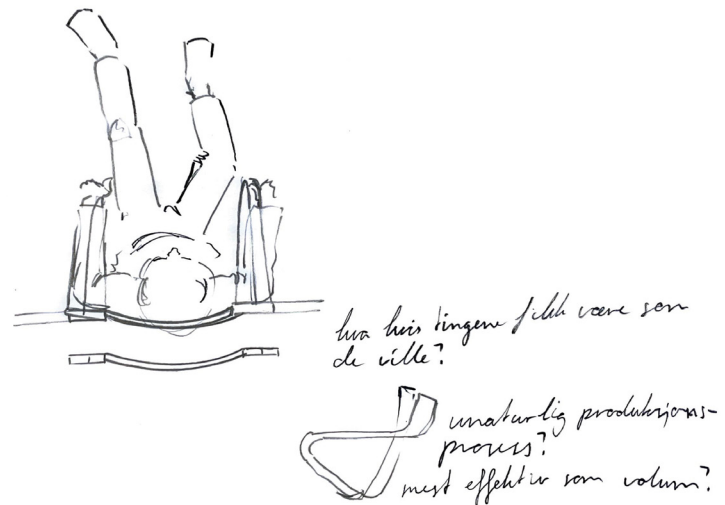 hva hvis tingene fikk være som
de ville?
unaturlig produksjons-
prosess?
mest effektiv som volum?